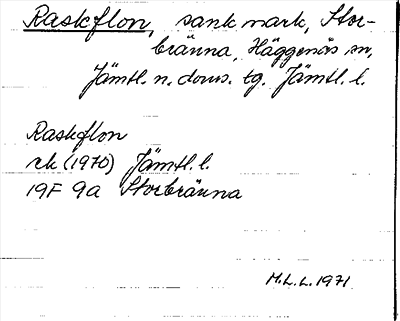 Raskflon, sank mark, Stor-
bränna, Häggenås sn,
Jämtl. n. doms. tg. Jämtl. l.
Raskflon
rk (1970) Jämtl. l.
19F 9a Storbränna
M.L.L. 1971